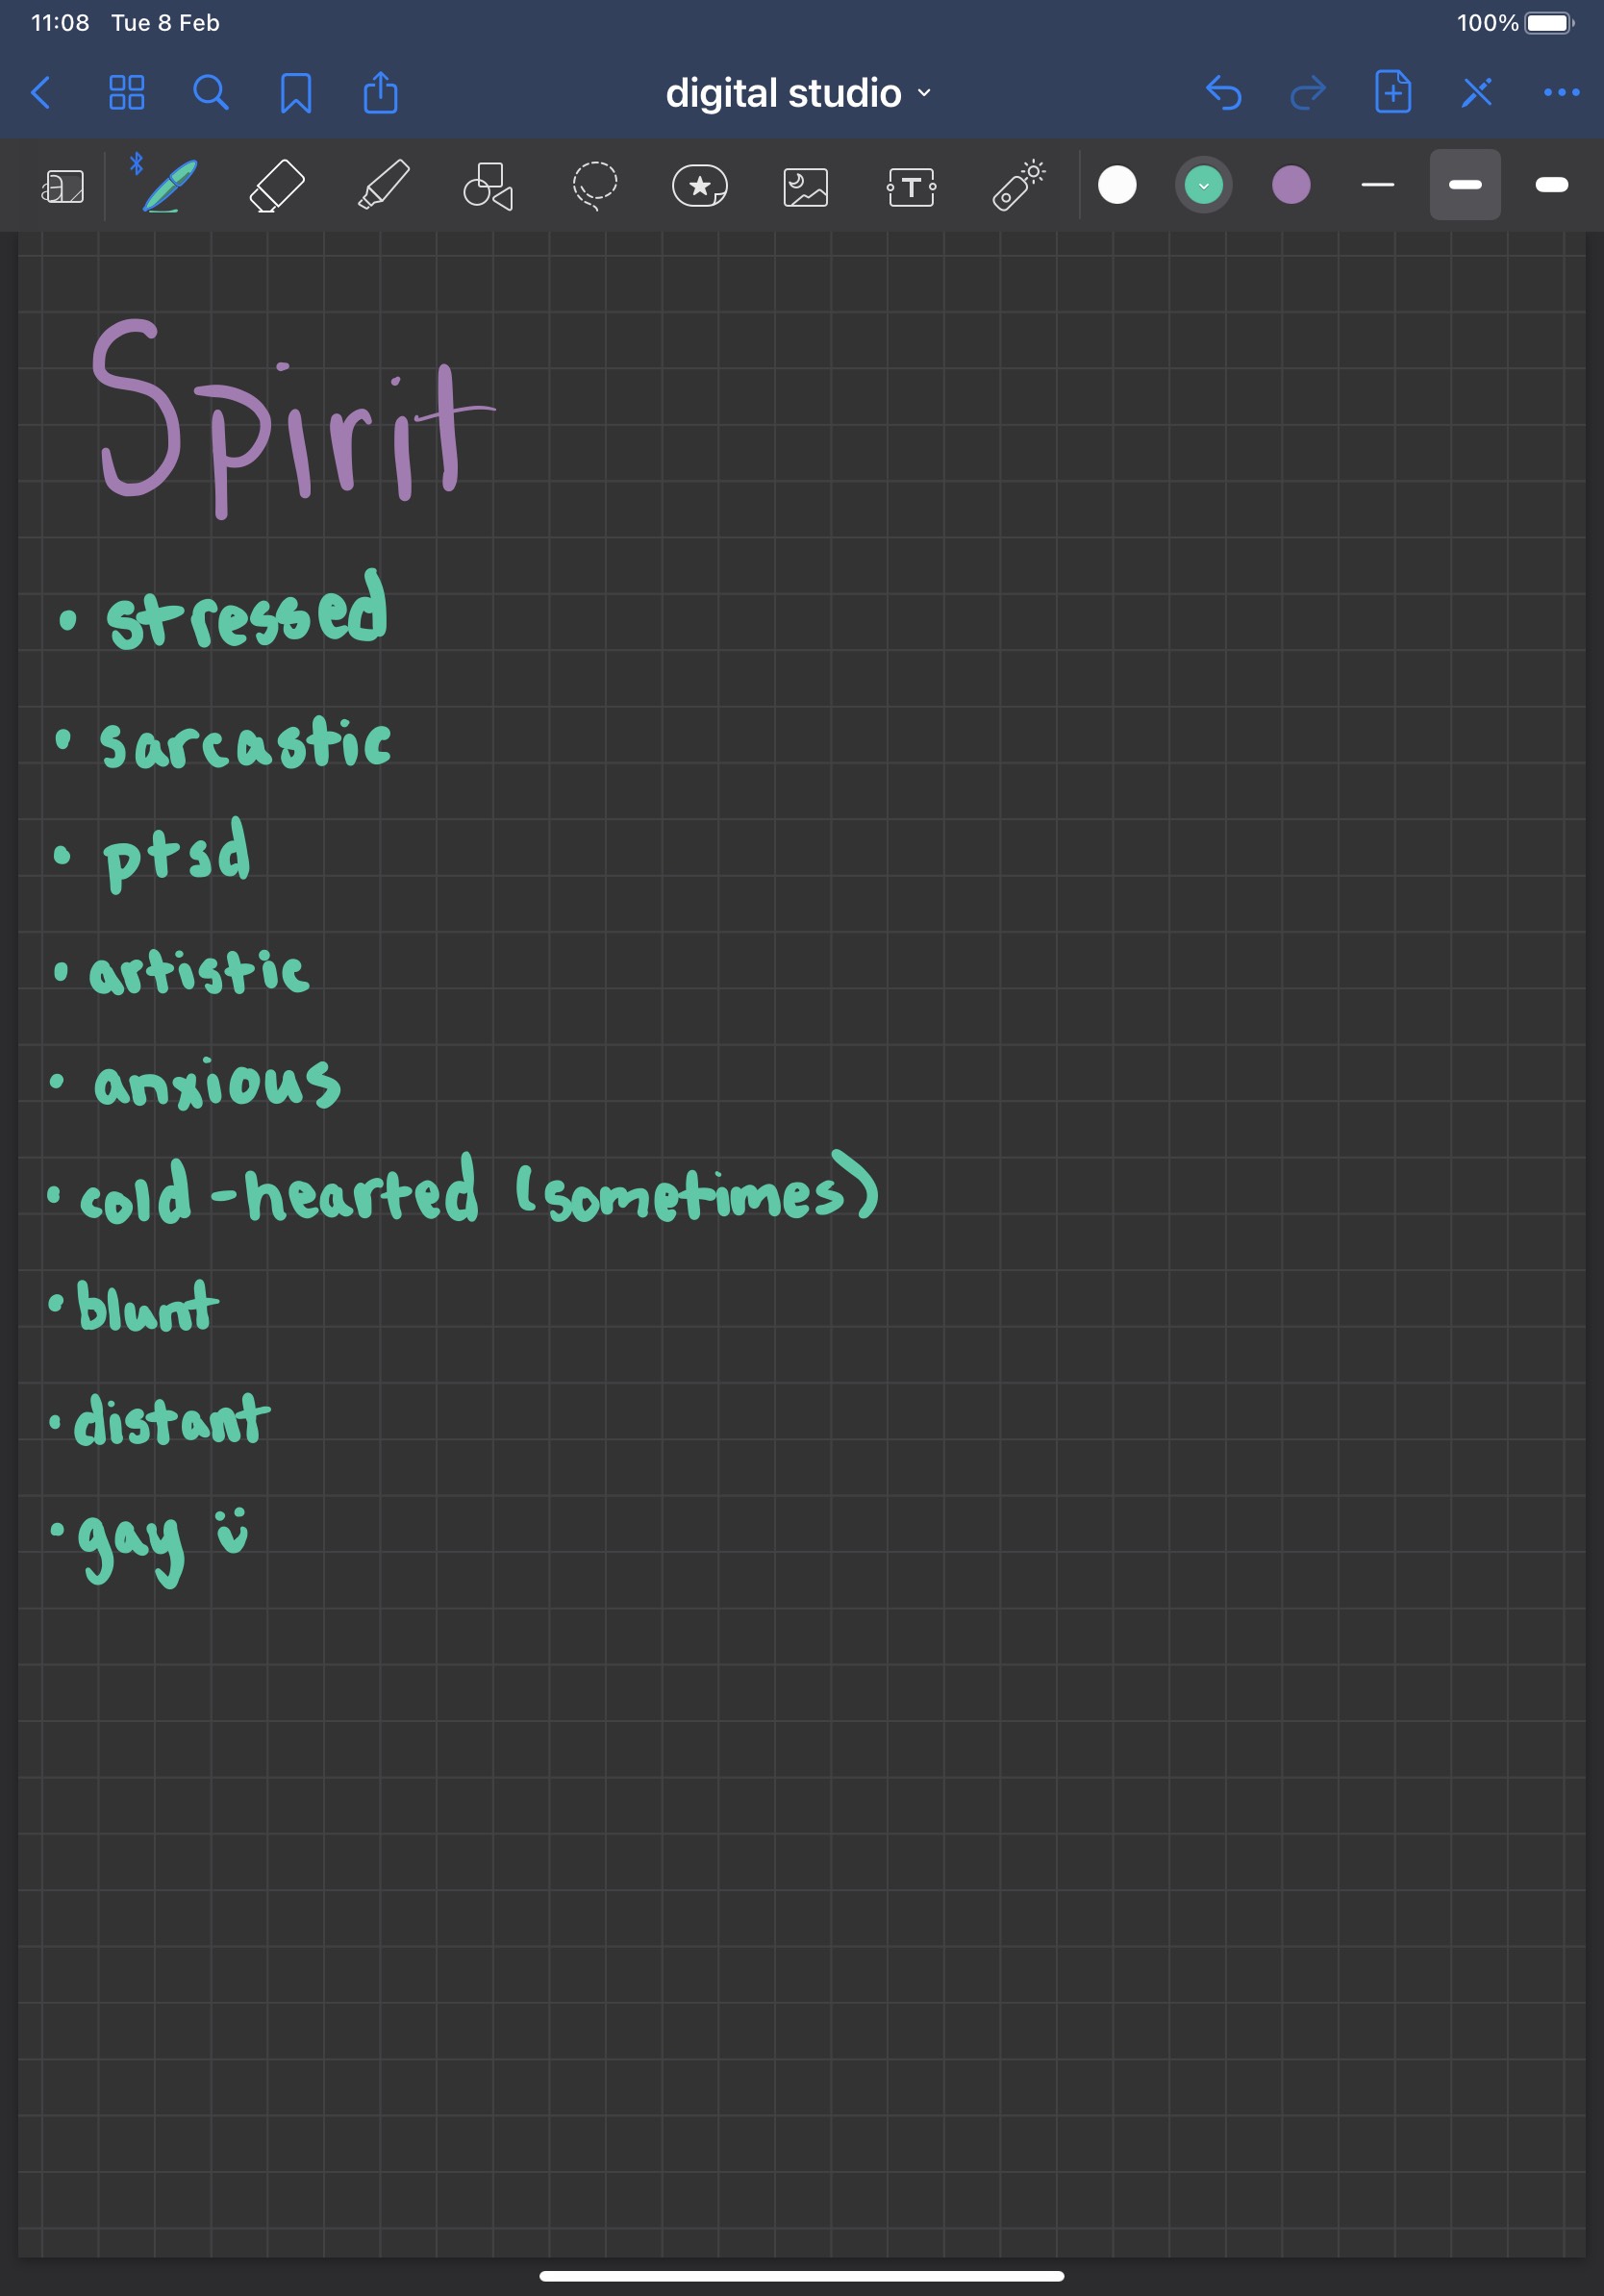 11:08 Tue 8 Feb 100%
digital studio
T
Spirit
• stressed
• sarcastic
• ptsd
• artistic
• anxious
• cold-hearted (sometimes)
• blunt
• distant
• gay ü